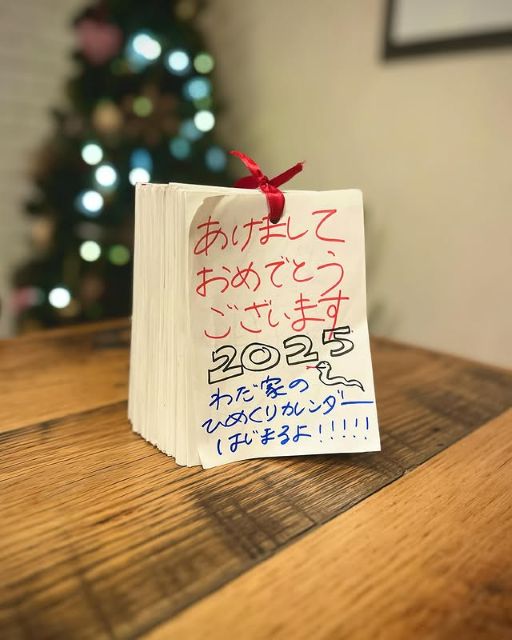 あけまして
おめでとう
ございます
2025
わだ家の
ひめくりカレンダー
はじまるよ!!!!!